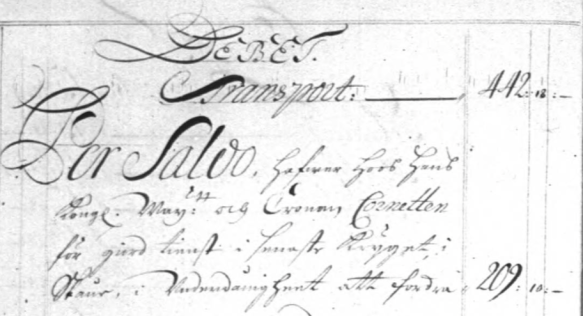 DEBET.
Transport: 442: 18: —
Per Saldo, hafwer hoos Hans
Kongl. May:tt och Cronan Cornetten
för giord tienst i senaste Kriget, i
Skåne, i Underdånigheet att fordra 209: 10: —